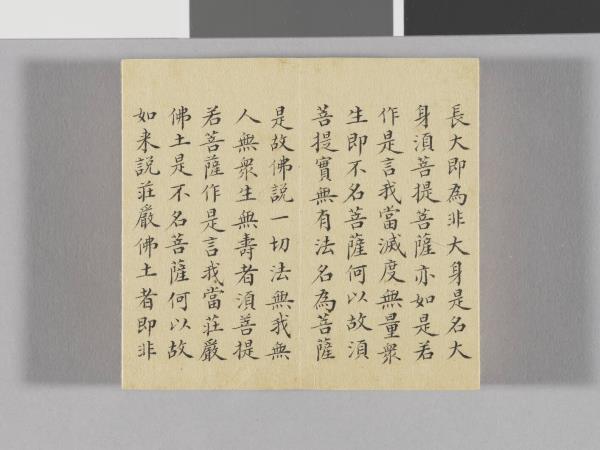 長大即為非大身是名大
身須菩提菩薩亦如是若
作是言我當滅度無量衆
生即不名菩薩何以故須
菩提實無有法名為菩薩
是故佛說一切法無我無
人無衆生無壽者須菩提
若菩薩作是言我當莊嚴
佛土是不名菩薩何以故
如来說莊嚴佛土者即非